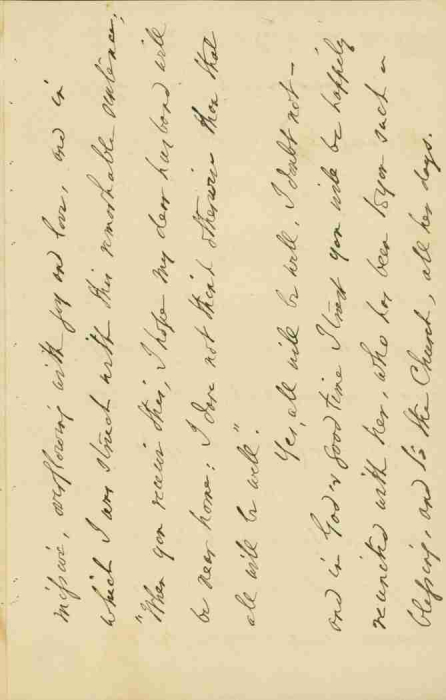 missive, overflowing with joy and love, and in
which I am struck with this remarkable sentence;
"When you receive this, I hope my dear husband will
be near home: I dare not think otherwise than that
all will be well".
Yes, all will be well, I doubt not –
and in God's good time I trust you will be happily
reunited with her, who has been to you such a
blessing, and to the Church, all her days.